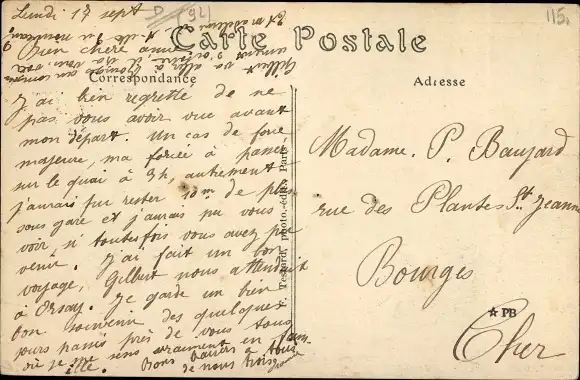 Lundi 17 sept
D (92)
115.
Carte Postale
Correspondance
Adresse
Bien chère amie
J'ai bien regretté de ne
pas vous avoir vue avant
mon départ. Un cas de force
majeure, ma forcée à passer
sur le quai à 3h, autrement
j'aurais pu rester 10m de plus
sous gare et j'aurais pu vous
voir, si toutefois vous avez pu
venir. J'ai fait un bon
voyage, Gilbert nous attendait
à Orsay. Je garde un bien
bon souvenir des quelques
jours passés près de vous tous
où je me sens vraiment en fam-
ille. Bons baisers à tous
de nous trois
Gilbert va aller à
Madame. P. Baujard
rue des Plantes St. Jeanne
Bourges
Cher
★ PB
F. Testard, photo.-édit., Paris